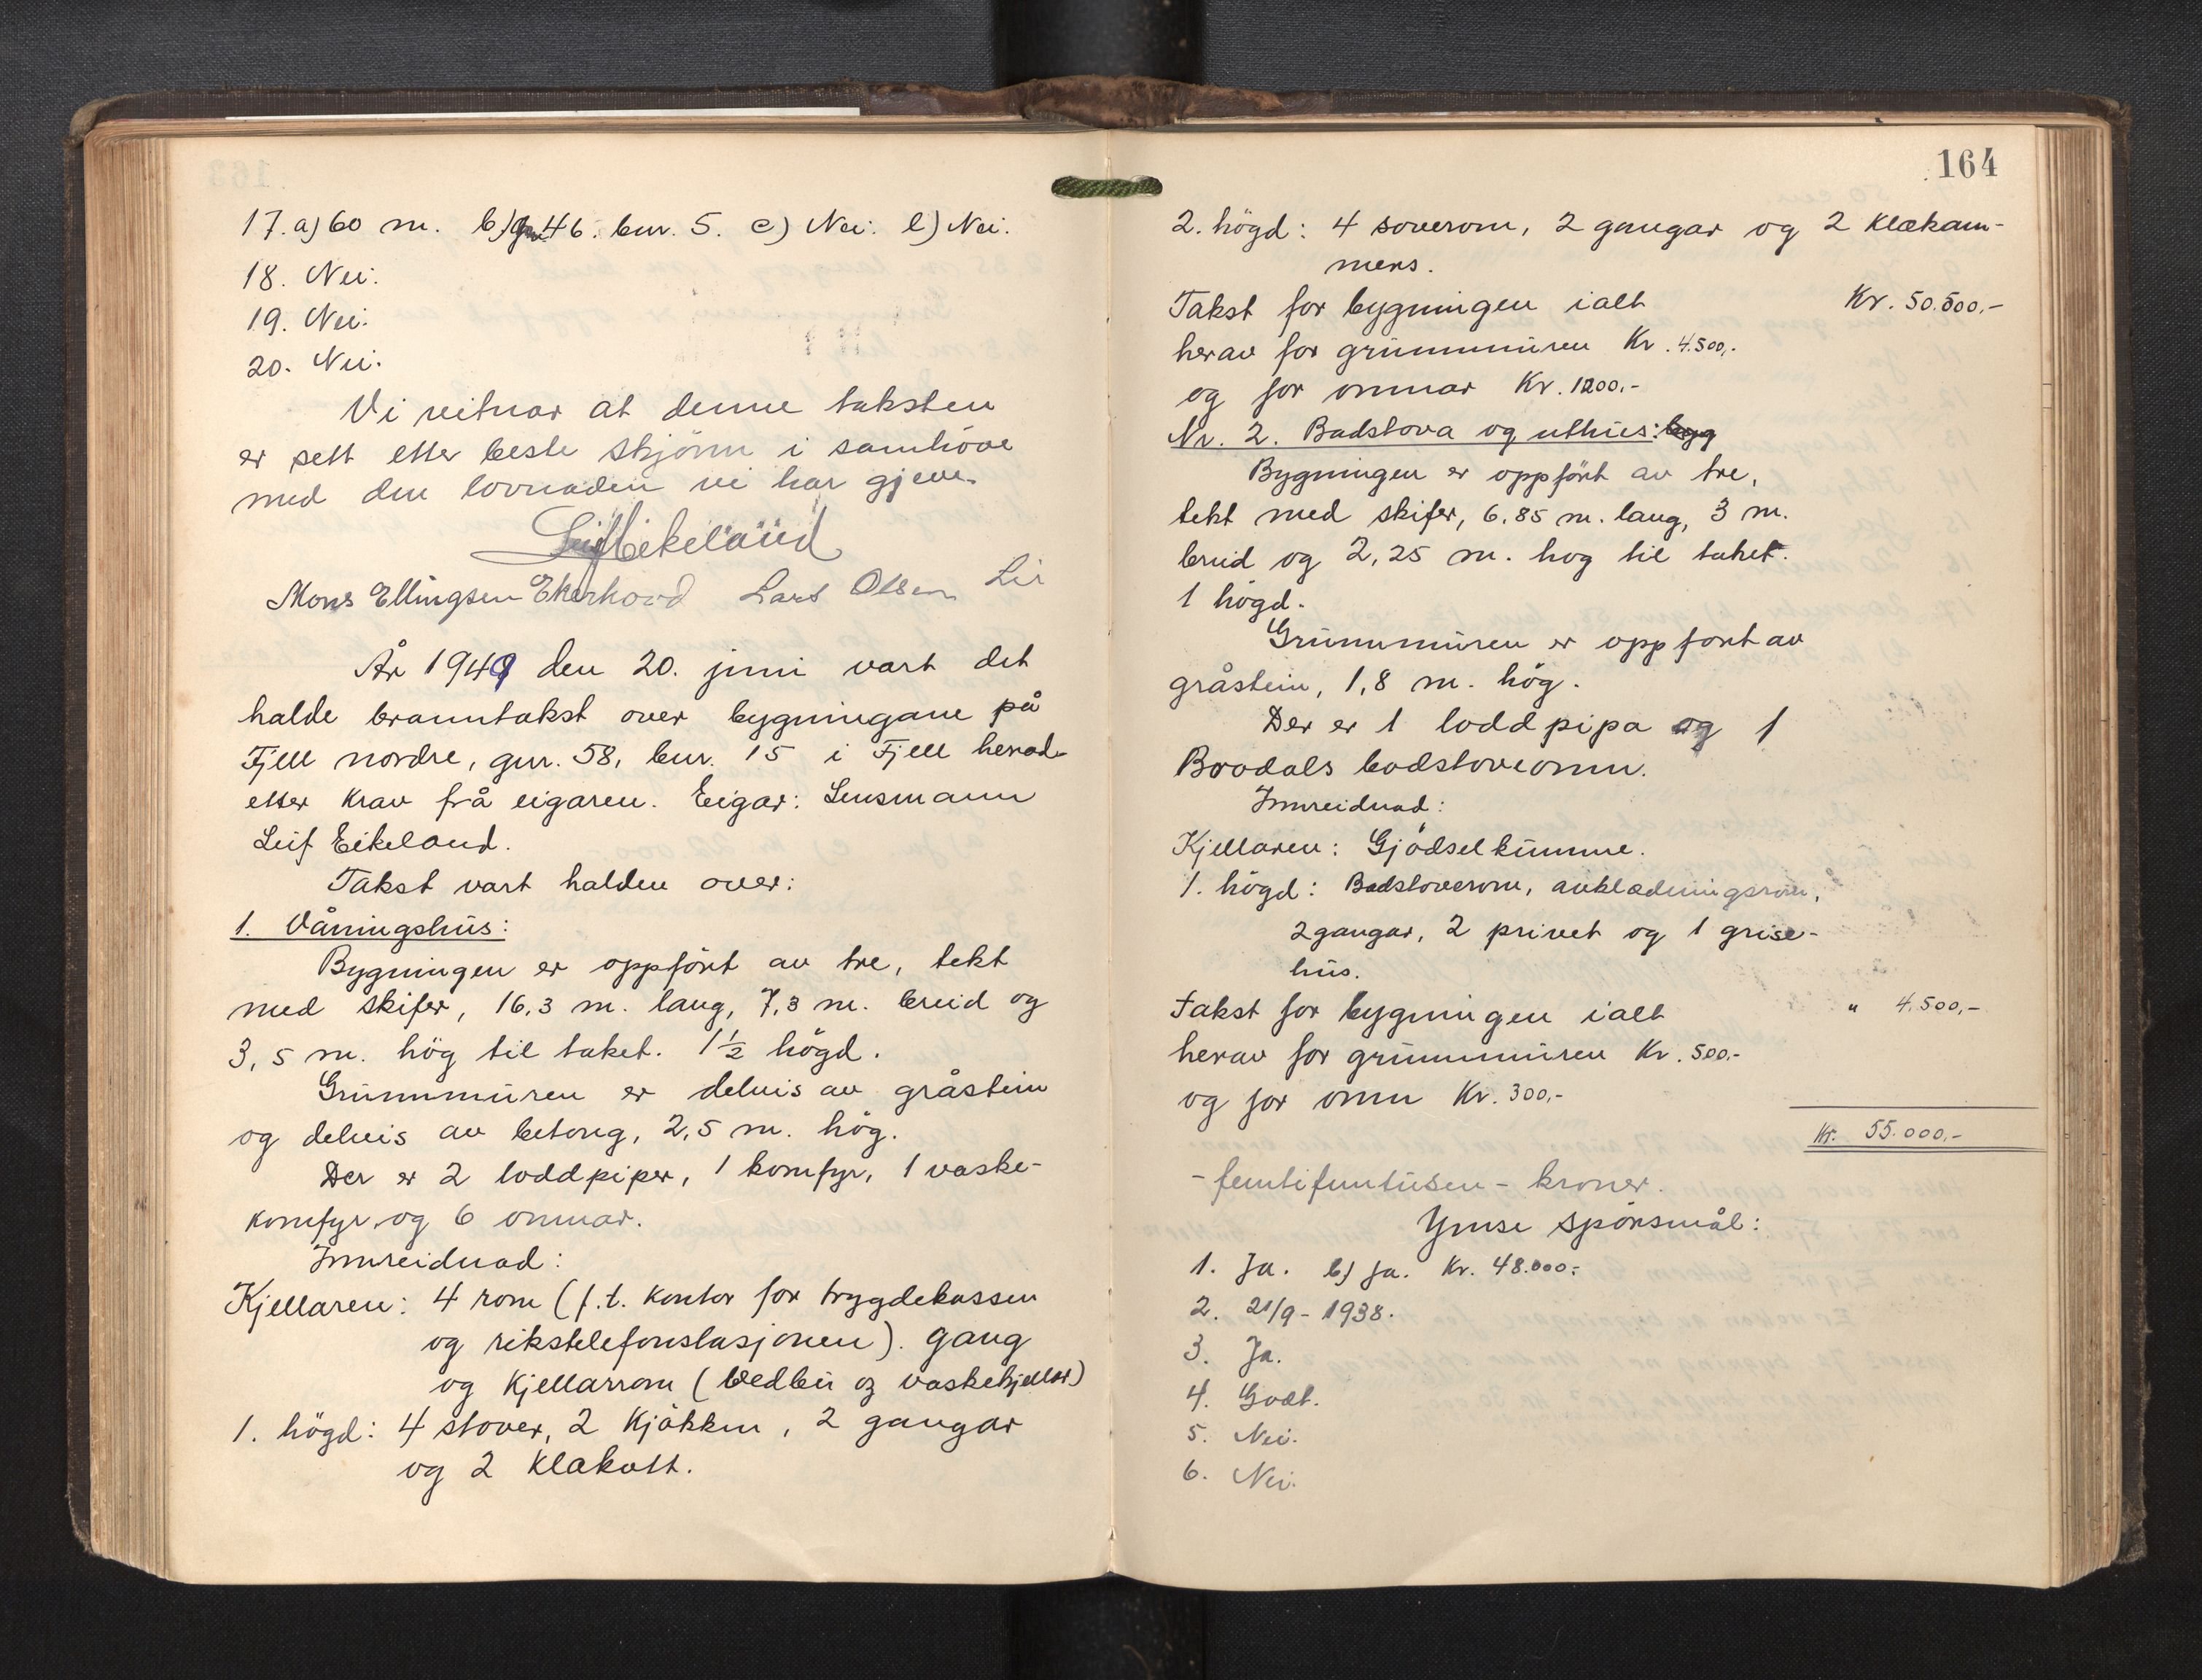 17. a) 60 m. b) gnr. 46. bnr. 5. c) Nei. l) Nei.
18. Nei.
19. Nei.
20. Nei.
Vi vitnar at denne taksten
er sett etter beste skjönn i samhöve
med den lovnaden vi har gjeve.
Leif Eikeland
Mons Ellingsen Ekerhovd Lars Olsen Lie
År 1949 den 20. juni vart det
halde branntakst over bygningane på
Fjell nordre, gnr. 58, bnr. 15 i Fjell herad
etter krav frå eigaren. Eigar: Lensmann
Leif Eikeland.
Takst vart halden over:
1. Våningshus:
Bygningen er oppfört av tre, tekt
med skifer, 16,3 m. lang, 7,3 m. breid og
3,5 m. hög til taket. 1½ högd.
Grunnmuren er delvis av gråstein
og delvis av betong, 2,5 m. hög.
Der er 2 loddpiper, 1 komfyr, 1 vaske-
komfyr og 6 omnar.
Innreidnad:
Kjellaren: 4 rom (f.t. kontor for trygdekassen
og rikstelefonstasjonen). gang
og kjellarrom (vedbu og vaskekjellar)
1. högd: 4 stover, 2 kjökken, 2 gangar
og 2 klækott.
164
2. högd: 4 soverom, 2 gangar og 2 klækam-
mers.
Takst for bygningen ialt Kr. 50.500,-
herav for grunnmuren Kr. 4.500,-
og for omnar Kr. 1200,-
Nr. 2. Badstova og uthus: byg
Bygningen er oppfört av tre,
tekt med skifer, 6,85 m. lang, 3 m.
breid og 2,25 m. hog til taket.
1 högd.
Grunnmuren er oppfort av
gråstein, 1,8 m. hög.
Der er 1 loddpipa og 1
Brodals badstoveomn.
Innreidnad:
Kjellaren: Gjödselkumme.
1. högd: Badstoverom, avklædningsrom,
2 gangar, 2 privet og 1 grise-
hus.
Takst for bygningen ialt " 4.500,-
herav for grunnmuren Kr. 500,-
og for omn Kr. 300,-
Kr. 55.000,-
- femtifemtusen - kroner.
Ymse spörsmål:
1. Ja. b) Ja. Kr. 48.000,-
2. 21/9 - 1938.
3. Ja.
4. Godt.
5. Nei.
6. Nei.